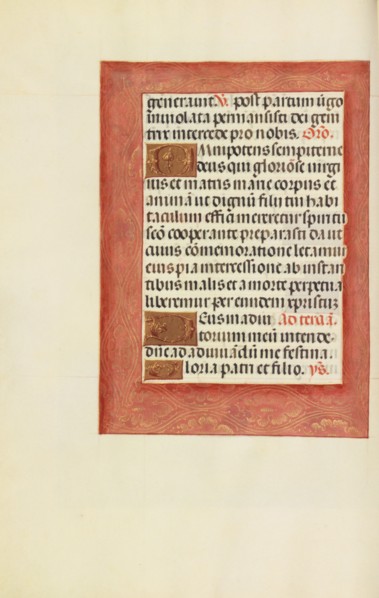 generaunt. V. post partum v̄go
inuiolata permansisti dei geni
trix intercede pro nobis. Orō.
Omnipotens sempiterne
deus qui gloriose virgi
nis et matris marie corpus et
animā ut dignū filii tui habi
taculum effici mereretur spiritu
scō cooperante preparasti da ut
cuius cōmemoratione letamur
eius pia intercessione ab instan
tibus malis et a morte perpetua
liberemur per eundem xpristuz
Deus in adiu Ad terciā.
torium meū intende.
dn̄e ad adiuuandū me festina.
Gloria patri et filio. ys̄.